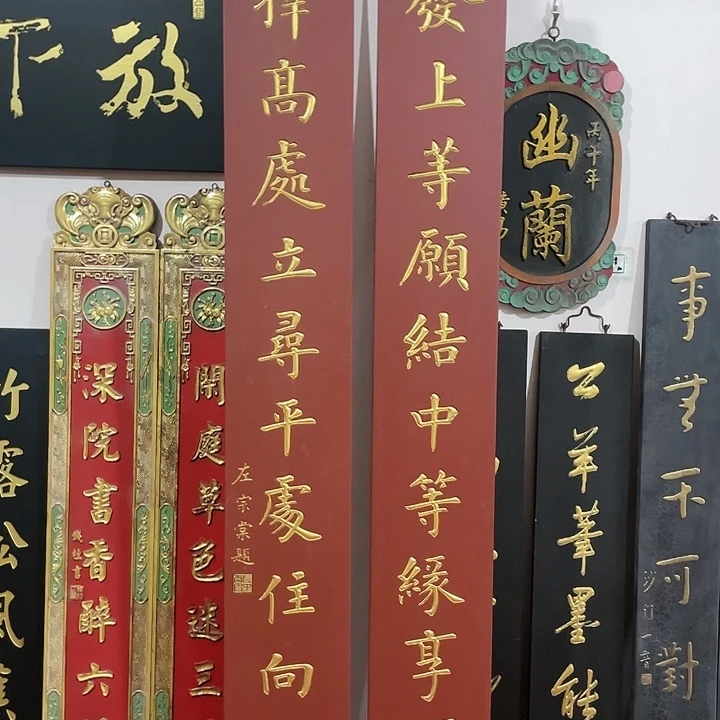 放下
幽蘭
丙午年
事無不可對
沙汀
發上等願結中等緣享
擇高處立尋平處住向
左宗棠題
閑庭草色迷三
深院書香醉六
竹露松風蕉